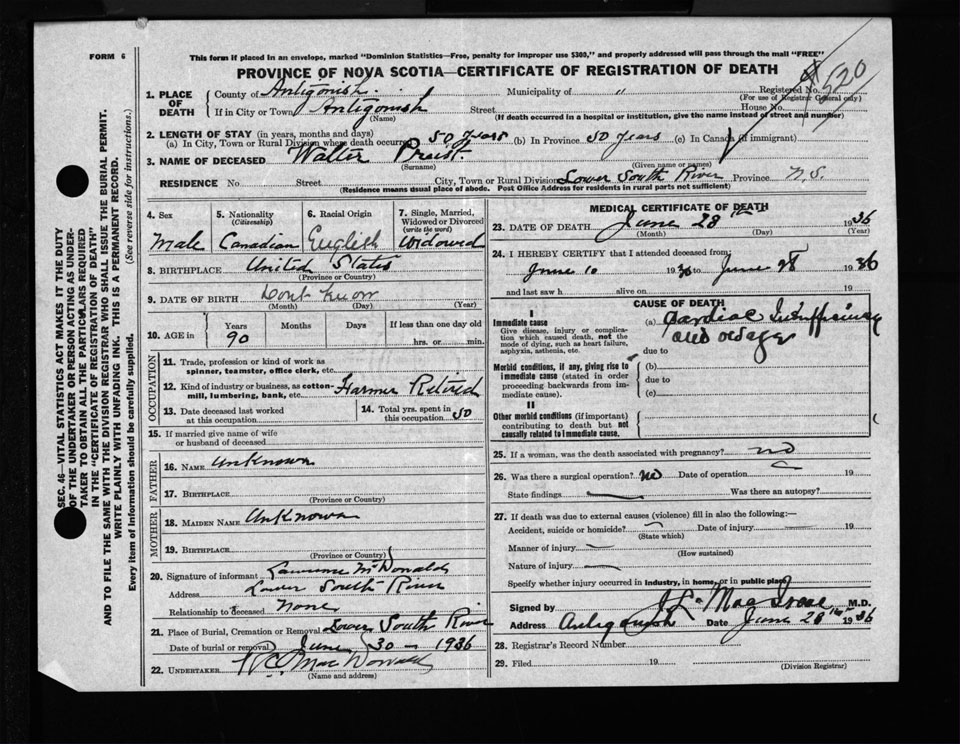 FORM 6
This form if placed in an envelope, marked "Dominion Statistics—Free, penalty for improper use $300," and properly addressed will pass through the mail "FREE"
PROVINCE OF NOVA SCOTIA—CERTIFICATE OF REGISTRATION OF DEATH
520
1. PLACE OF DEATH
County of Antigonish Municipality of " Registered No.
(For use of Registrar General only)
If in City or Town Antigonish Street House No.
(Name) (If death occurred in a hospital or institution, give the name instead of street and number)
2. LENGTH OF STAY (in years, months and days)
(a) In City, Town or Rural Division where death occurred 50 years (b) In Province 50 years (c) In Canada (if immigrant)
3. NAME OF DECEASED Walter Priest
(Surname) (Given name or names)
RESIDENCE No. Street City, Town or Rural Division Lower South River Province N.S.
(Residence means usual place of abode. Post Office Address for residents in rural parts not sufficient)
4. Sex Male
5. Nationality (Citizenship) Canadian
6. Racial Origin English
7. Single, Married, Widowed or Divorced (write the word) Widowed
8. BIRTHPLACE United States
(Province or Country)
9. DATE OF BIRTH Dont Know
(Month) (Day) (Year)
10. AGE in Years Months Days If less than one day old
90 hrs. or min.
OCCUPATION
11. Trade, profession or kind of work as spinner, teamster, office clerk, etc.
12. Kind of industry or business, as cotton-mill, lumbering, bank, etc. Farmer Retired
13. Date deceased last worked at this occupation
14. Total yrs. spent in this occupation 50
15. If married give name of wife or husband of deceased
FATHER
16. NAME Unknown
17. BIRTHPLACE
(Province or Country)
MOTHER
18. MAIDEN NAME Unknown
19. BIRTHPLACE
(Province or Country)
20. Signature of informant Lawrence McDonald
Address Lower South River
Relationship to deceased None
21. Place of Burial, Cremation or Removal Lower South River
Date of burial or removal June 30 - 1936
22. UNDERTAKER MacDonald
(Name and address)
MEDICAL CERTIFICATE OF DEATH
23. DATE OF DEATH June 28th 1936
(Month) (Day) (Year)
24. I HEREBY CERTIFY that I attended deceased from
June 10 1936 to June 28 1936
and last saw h alive on 19
CAUSE OF DEATH
I
Immediate cause
Give disease, injury or complication which caused death, not the mode of dying, such as heart failure, asphyxia, asthenia, etc.
(a) Cardiac Insufficiency
and old age
due to
Morbid conditions, if any, giving rise to immediate cause (stated in order proceeding backwards from immediate cause).
(b)
due to
(c)
II
Other morbid conditions (if important) contributing to death but not causally related to immediate cause.
25. If a woman, was the death associated with pregnancy? no
26. Was there a surgical operation? no Date of operation 19
State findings Was there an autopsy?
27. If death was due to external causes (violence) fill in also the following:—
Accident, suicide or homicide? Date of injury 19
(State which)
Manner of injury
(How sustained)
Nature of injury
Specify whether injury occurred in industry, in home, or in public place
Signed by M.D.
Address Antigonish Date June 28th 1936
28. Registrar's Record Number
29. Filed 19
(Division Registrar)
SEC. 46—VITAL STATISTICS ACT MAKES IT THE DUTY
OF THE UNDERTAKER OR PERSON ACTING AS UNDERTAKER TO OBTAIN ALL THE PARTICULARS REQUIRED
IN THE "CERTIFICATE OF REGISTRATION OF DEATH"
AND TO FILE THE SAME WITH THE DIVISION REGISTRAR WHO SHALL ISSUE THE BURIAL PERMIT.
WRITE PLAINLY WITH UNFADING INK. THIS IS A PERMANENT RECORD.
Every item of information should be carefully supplied. (See reverse side for instructions.)